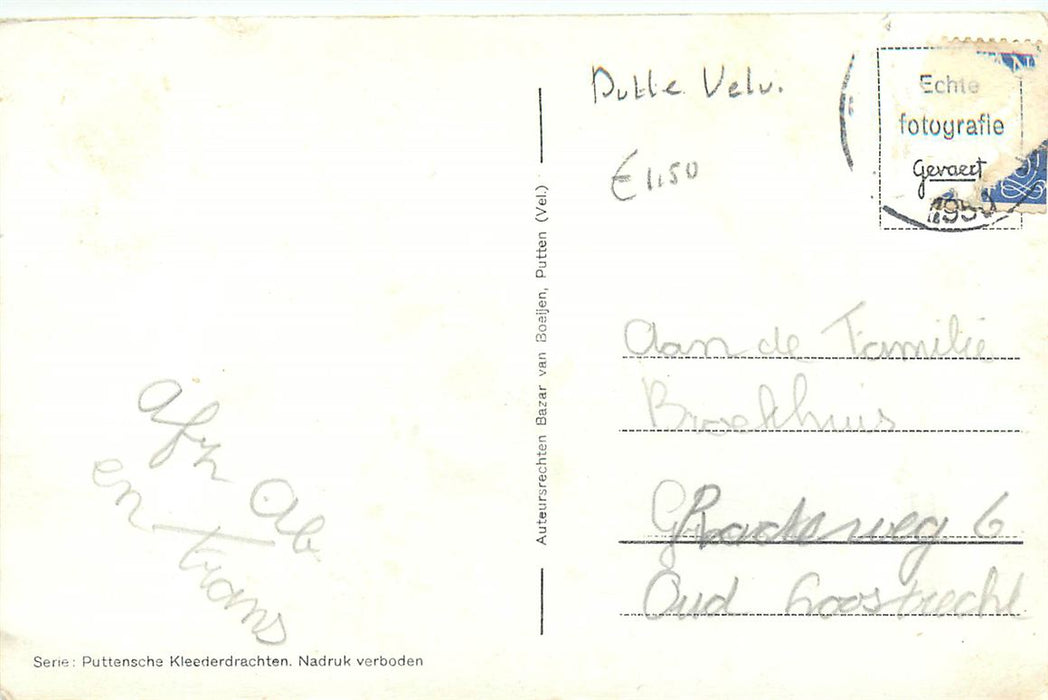 Putte Velu.
€ 1,50
Echte
fotografie
Gevaert
195
Afz Ab
en Trans
Auteursrechten Bazar van Boeijen, Putten (Vel.)
Aan de Familie
Broekhuis
weg 6
Oud
Serie: Puttensche Kleederdrachten. Nadruk verboden